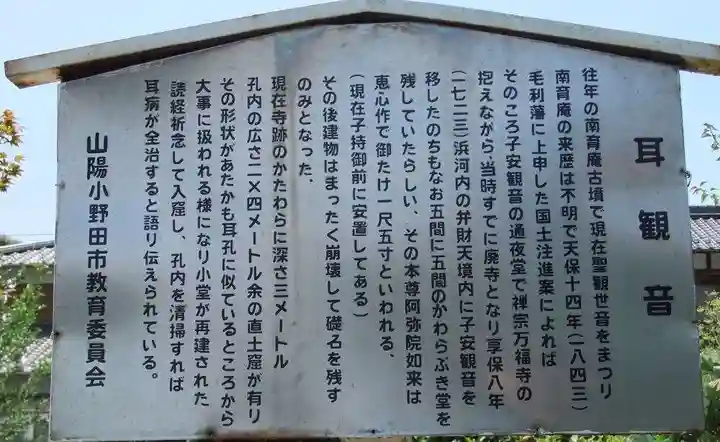 耳観音
往年の南育庵古墳で現在聖観世音をまつり
南育庵の来歴は不明で天保十四年(一八四三)
毛利藩に上申した国土注進案によれば
そのころ子安観音の通夜堂で禅宗万福寺の
抱えながら、当時すでに廃寺となり享保八年
(一七二三)浜河内の弁財天境内に子安観音を
移したのちもなお五間に五間のかわらぶき堂を
残していたらしい、その本尊阿弥院如来は
恵心作で御たけ一尺五寸といわれる、
(現在子持御前に安置してある)
その後建物はまったく崩壊して礎名を残す
のみとなった、
現在寺跡のかたわらに深さ三メートル
孔内の広さ二×四メートル余の直土窟が有り
その形状があたかも耳孔に似ているところから
大事に扱われる様になり小堂が再建された
読経祈念して入窟し、孔内を清掃すれば
耳病が全治すると語り伝えられている。
山陽小野田市教育委員会